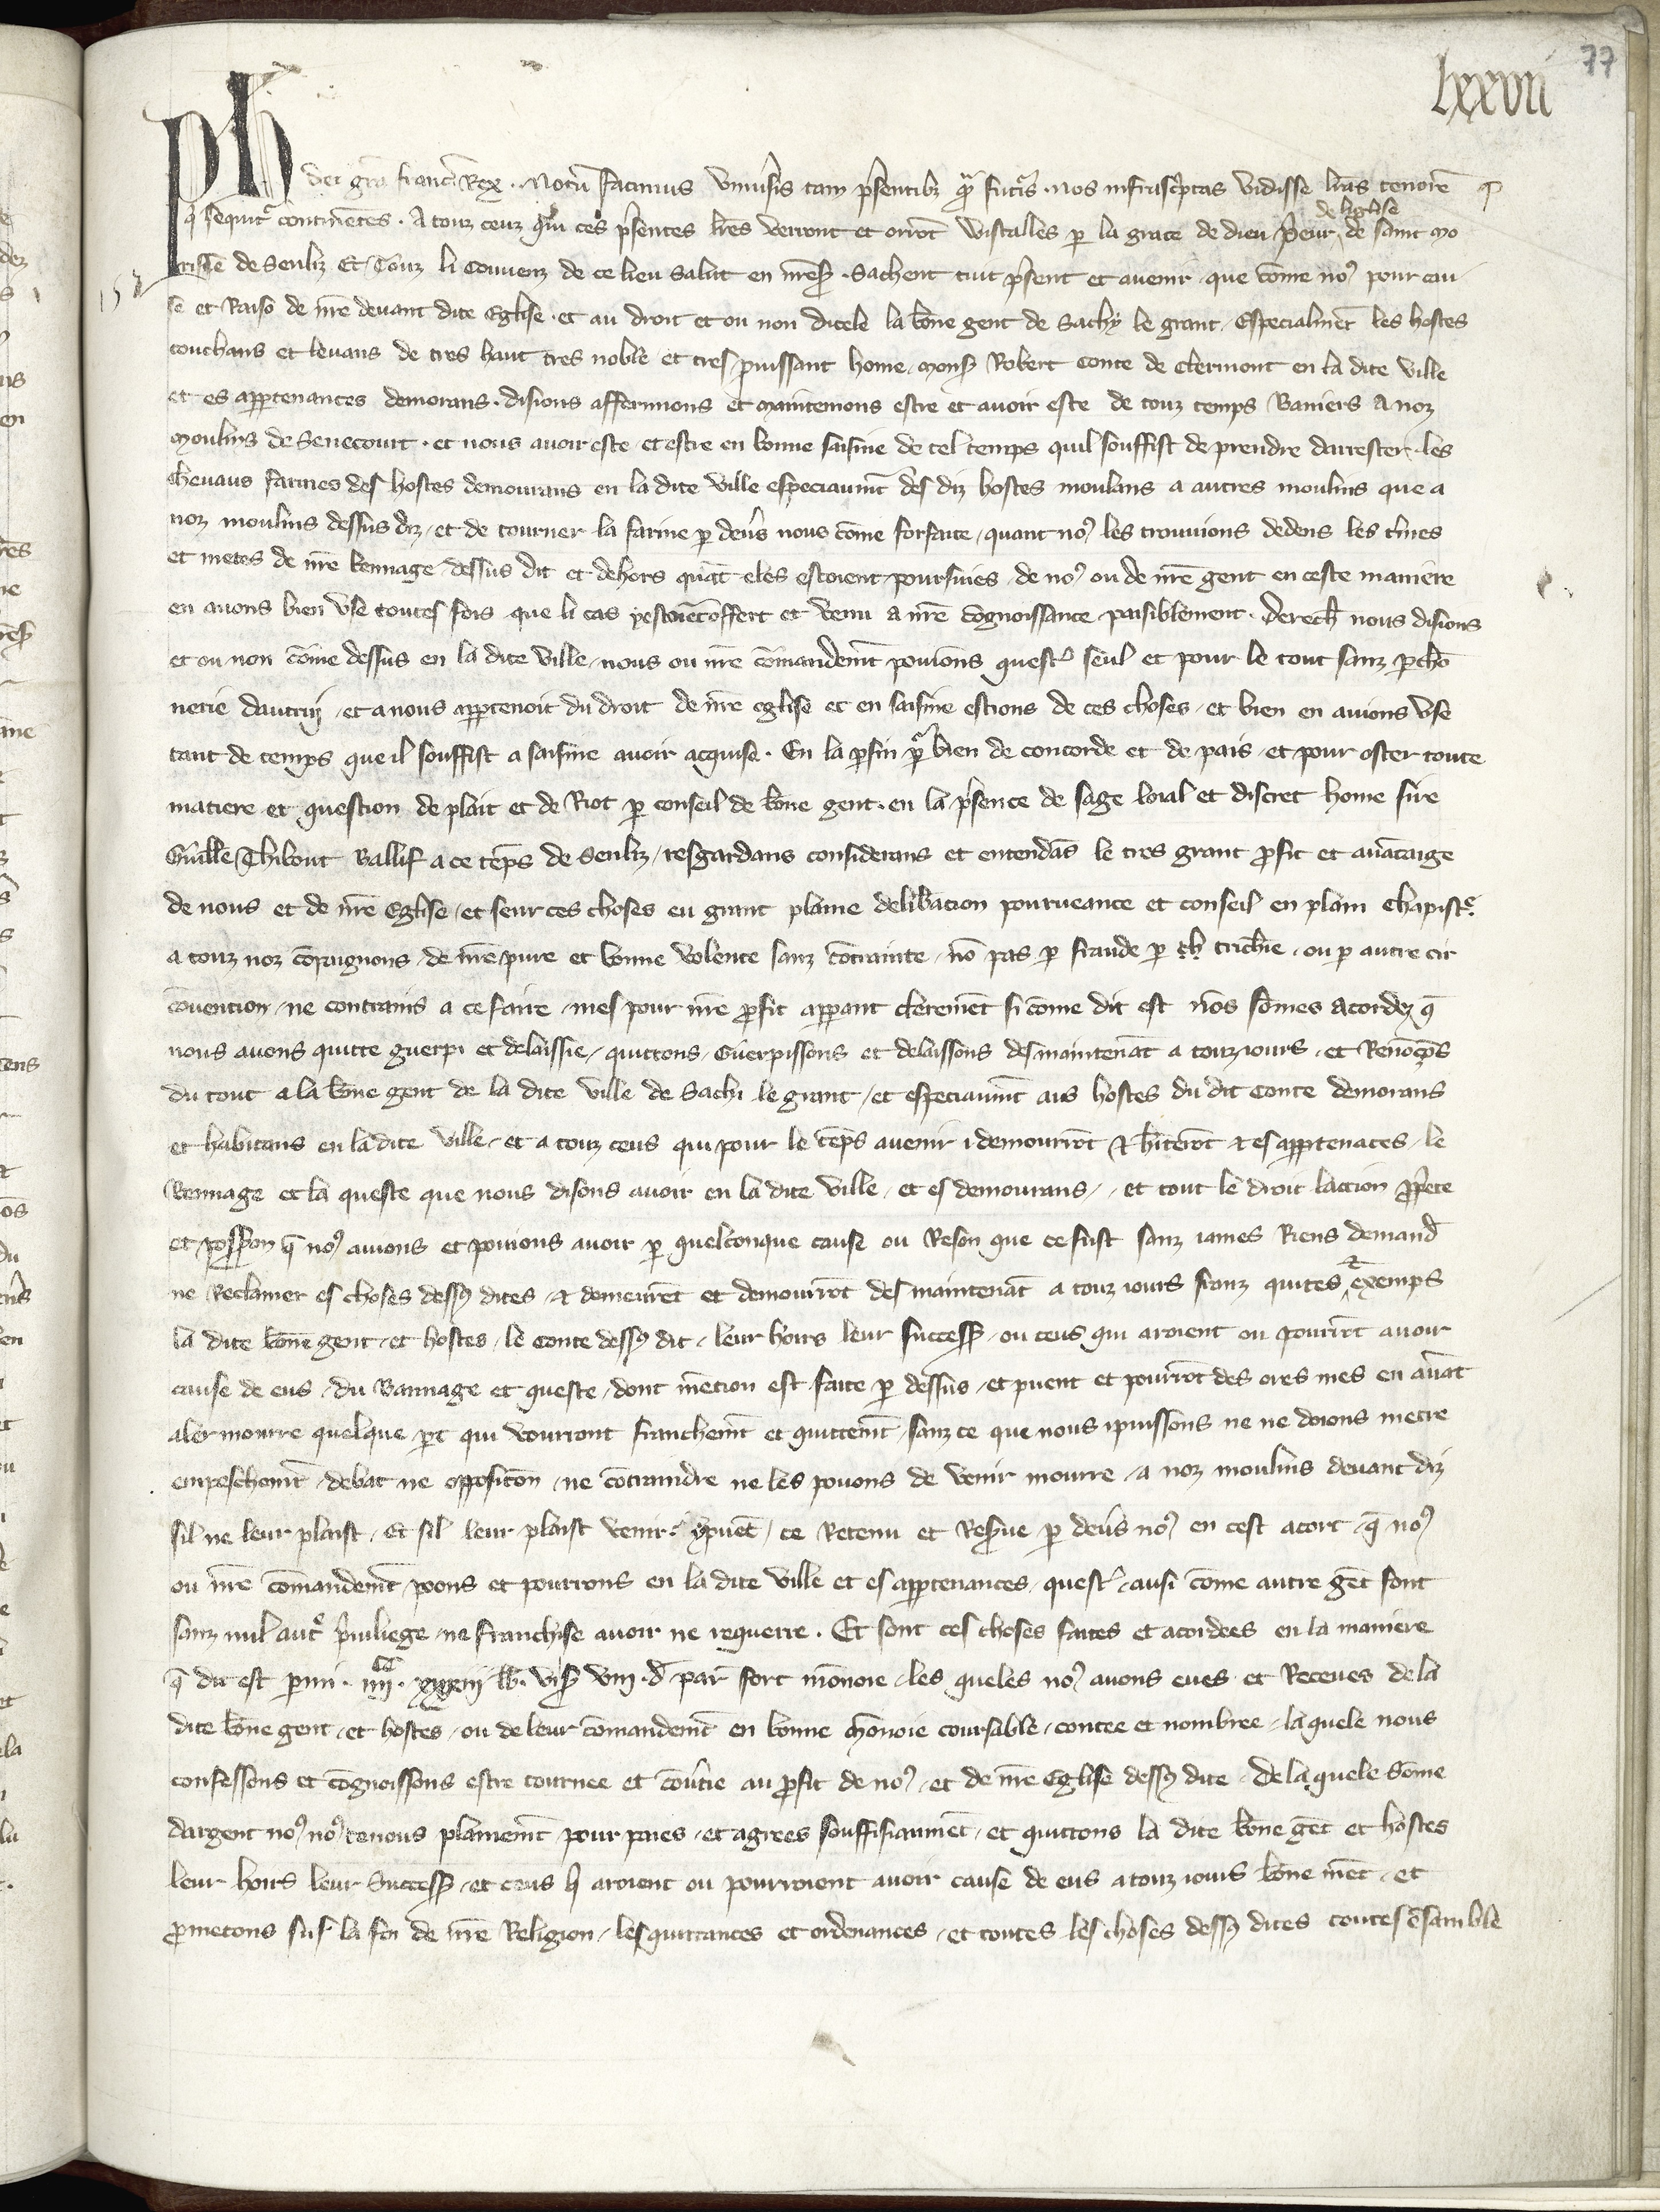 77
lxxvii
Ph dei gra franc Rex . Notu facimus vniusis tam psentibz qm futis . nos infrascptas vidisse lras tenore
q sequit continentes . A touz ceuz qui ces psentes lres verront et orrot Wistasses p la grace de dieu prieur de leglise de saint Mo
risse de Senliz Et Touz li Couuenz de ce lieu salut en nres . Sachent tuit psent et auenir que come nos pour cau
se et Raiso de nre deuant dite Eglise . et au droit et ou non dicele la bone gent de Sachy le grant / Especialmet les hostes
couchans et leuans de tres haut tres noble et tres puissant home mons Robert Conte de Clermont en la dite ville
et es appartenances demorans . disions affermions et maintenions estre et auoir este de touz temps Baniers A noz
moulins de Senecourt . et nous auoir este et estre en bonne saisine de tel temps quil souffist de prendre darrester les
cheuaus farines des hostes demourans en la dite ville especiaumt des diz hostes moulans a autres moulins que a
noz moulins dessus diz . et de tourner la farine p deuers nous come forfaite / quant nos les trouuions dedens les tmes
et metes de nre bennage dessus dit et dehors quat eles estoient poursuies de nos ou de nre gent en ceste maniere
en auons bien vse toutes fois que li cas sestoiet offert et venu a nre cognoissance paisiblement . Derech nous disions
et ou non come dessus en la dite ville / nous ou nre comandemt pouions quest seul et pour le tout sanz pcho
nerie dautrui et a nous appartenoit du droit de nre eglise et en saisine estions de ces choses et bien en auions vse
tant de temps que il souffist a saisine auoir acquise . En la pfin p bien de concorde et de pais et pour oster toute
matiere et question de plait et de Riot p conseil de bone gent en la psence de sage loial et discret home sire
Guille Thibout Ballif a ce teps de Senliz / resgardans considerans et entendas le tres grant pfit et auataige
de nous et de nre Eglise / et seur ces choses eu grant plaine delibacion pourueance et conseil en plain chapist
a touz noz compaignons de nre pure et bonne volente sanz cotrainte / no pas p fraude p tricherie . ou p autre cir
couention / ne contrains a ce faire mes pour nre pfit apparant cleremet si come dit est nos somes acordez q
nous auons quitte guerpi et delaissie / quittons Guerpissons et delaissons des maintenat a touz iours et Renocos
du tout a la bone gent de la dite ville de Sachi le grant / et especiaumt aus hostes du dit Conte demorans
et habitans en la dite ville / et a touz ceus qui pour le teps auenir i demourrot & hiterot & es appartenaces / le
Bennage et la queste que nous disons auoir en la dite ville / et es demourans / et tout le droit laction pprete
et possion q nos auions et pouions auoir p quelconque cause ou Reson que ce fust sanz iames Riens demand
ne Reclamer es choses dessus dites / & demeuret et demourrot des maintenat a touz iours frans quites & exemps
la dite bone gent et hostes / le Conte dessus dit / leur hoirs leur success / ou ceus qui aroient ou pourrot auoir
cause de eus du Bannage et queste / dont mencion est faite p dessus et puent et pourrot des ores mes en auat
aler mourre quelque pt qui vourront franchemt et quittemt / sanz ce que nous i puissons ne ne doions metre
empeschemt debat ne oppositon ne cotraindre ne les pouons de venir mourre a noz moulins deuant diz
sil ne leur plaist . Et sil leur plaist venir y puet / ce Retenu et Resue p deus nos en cest acort q nos
ou nre comandemt poons et pourrons en la dite ville et es appartenances quest ausi come autre get font
sanz nul autre priuilege ne franchise auoir ne requerre . Et sont ces choses faites et acordees en la maniere
q dit est pmi . iiii . xxxiiii lb . vis viii . d par fort monoie les queles nos auons eues et Receues de la
dite bone gent et hostes / ou de leur comandemt en bonne monoie coursable / contee et nombree la quele nous
confessons et cognoissons estre tournee et couertie au pfit de nos et de nre Eglise dessus dite de la quele some
dargent nos nos tenous plainemt pour paies et agrees souffisiaumet et quittons la dite bone get et hostes
leur hoirs leur success et ceus q aroient ou pourroient auoir cause de eus a touz iours bone met et
pmetons sus la foi de nre Religion / les quittances et ordenances et toutes les choses dessus dites toutes esamble